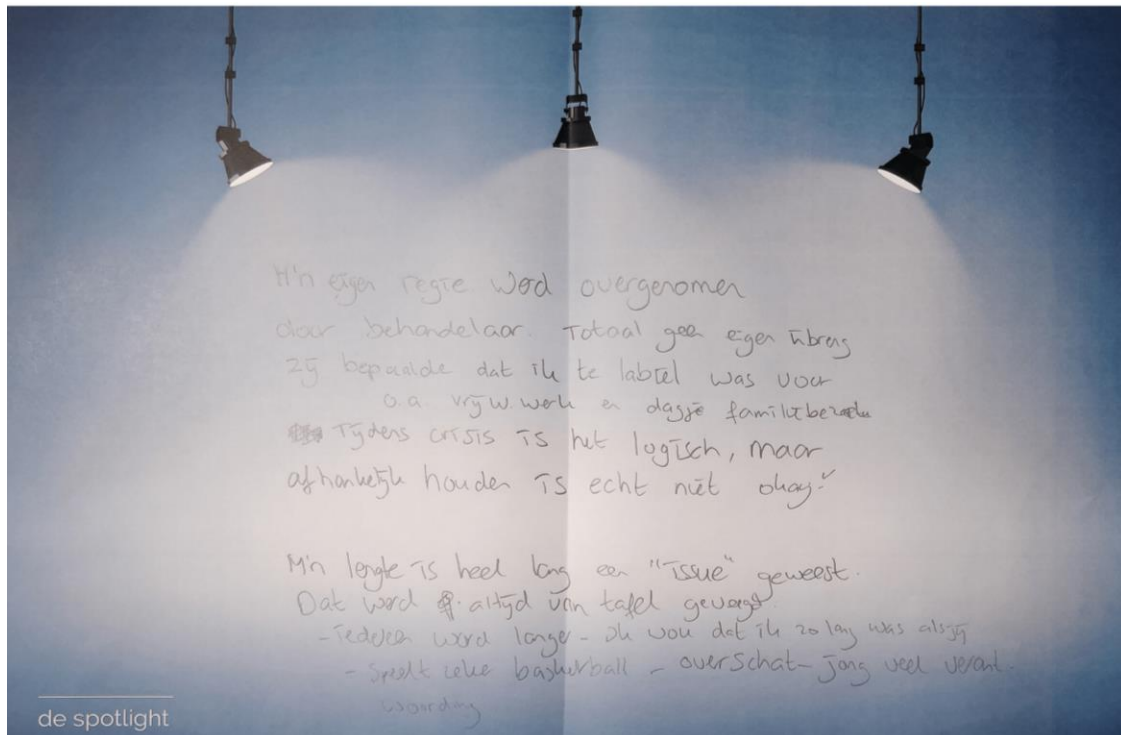 M'n eigen regie werd overgenomen
door behandelaar. Totaal geen eigen inbreng
Zij bepaalde dat ik te labiel was voor
o.a. vrijw. werk en dagje familiebezoek
Tijdens crisis is het logisch, maar
afhankelijk houden is echt niet okay!
M'n lengte is heel lang een "issue" geweest.
Dat werd altijd van tafel geveegd
- iedereen word langer - ik wou dat ik zo lang was als jij
- speelt leke basketball - overschat - jong veel verant.
woording
de spotlight